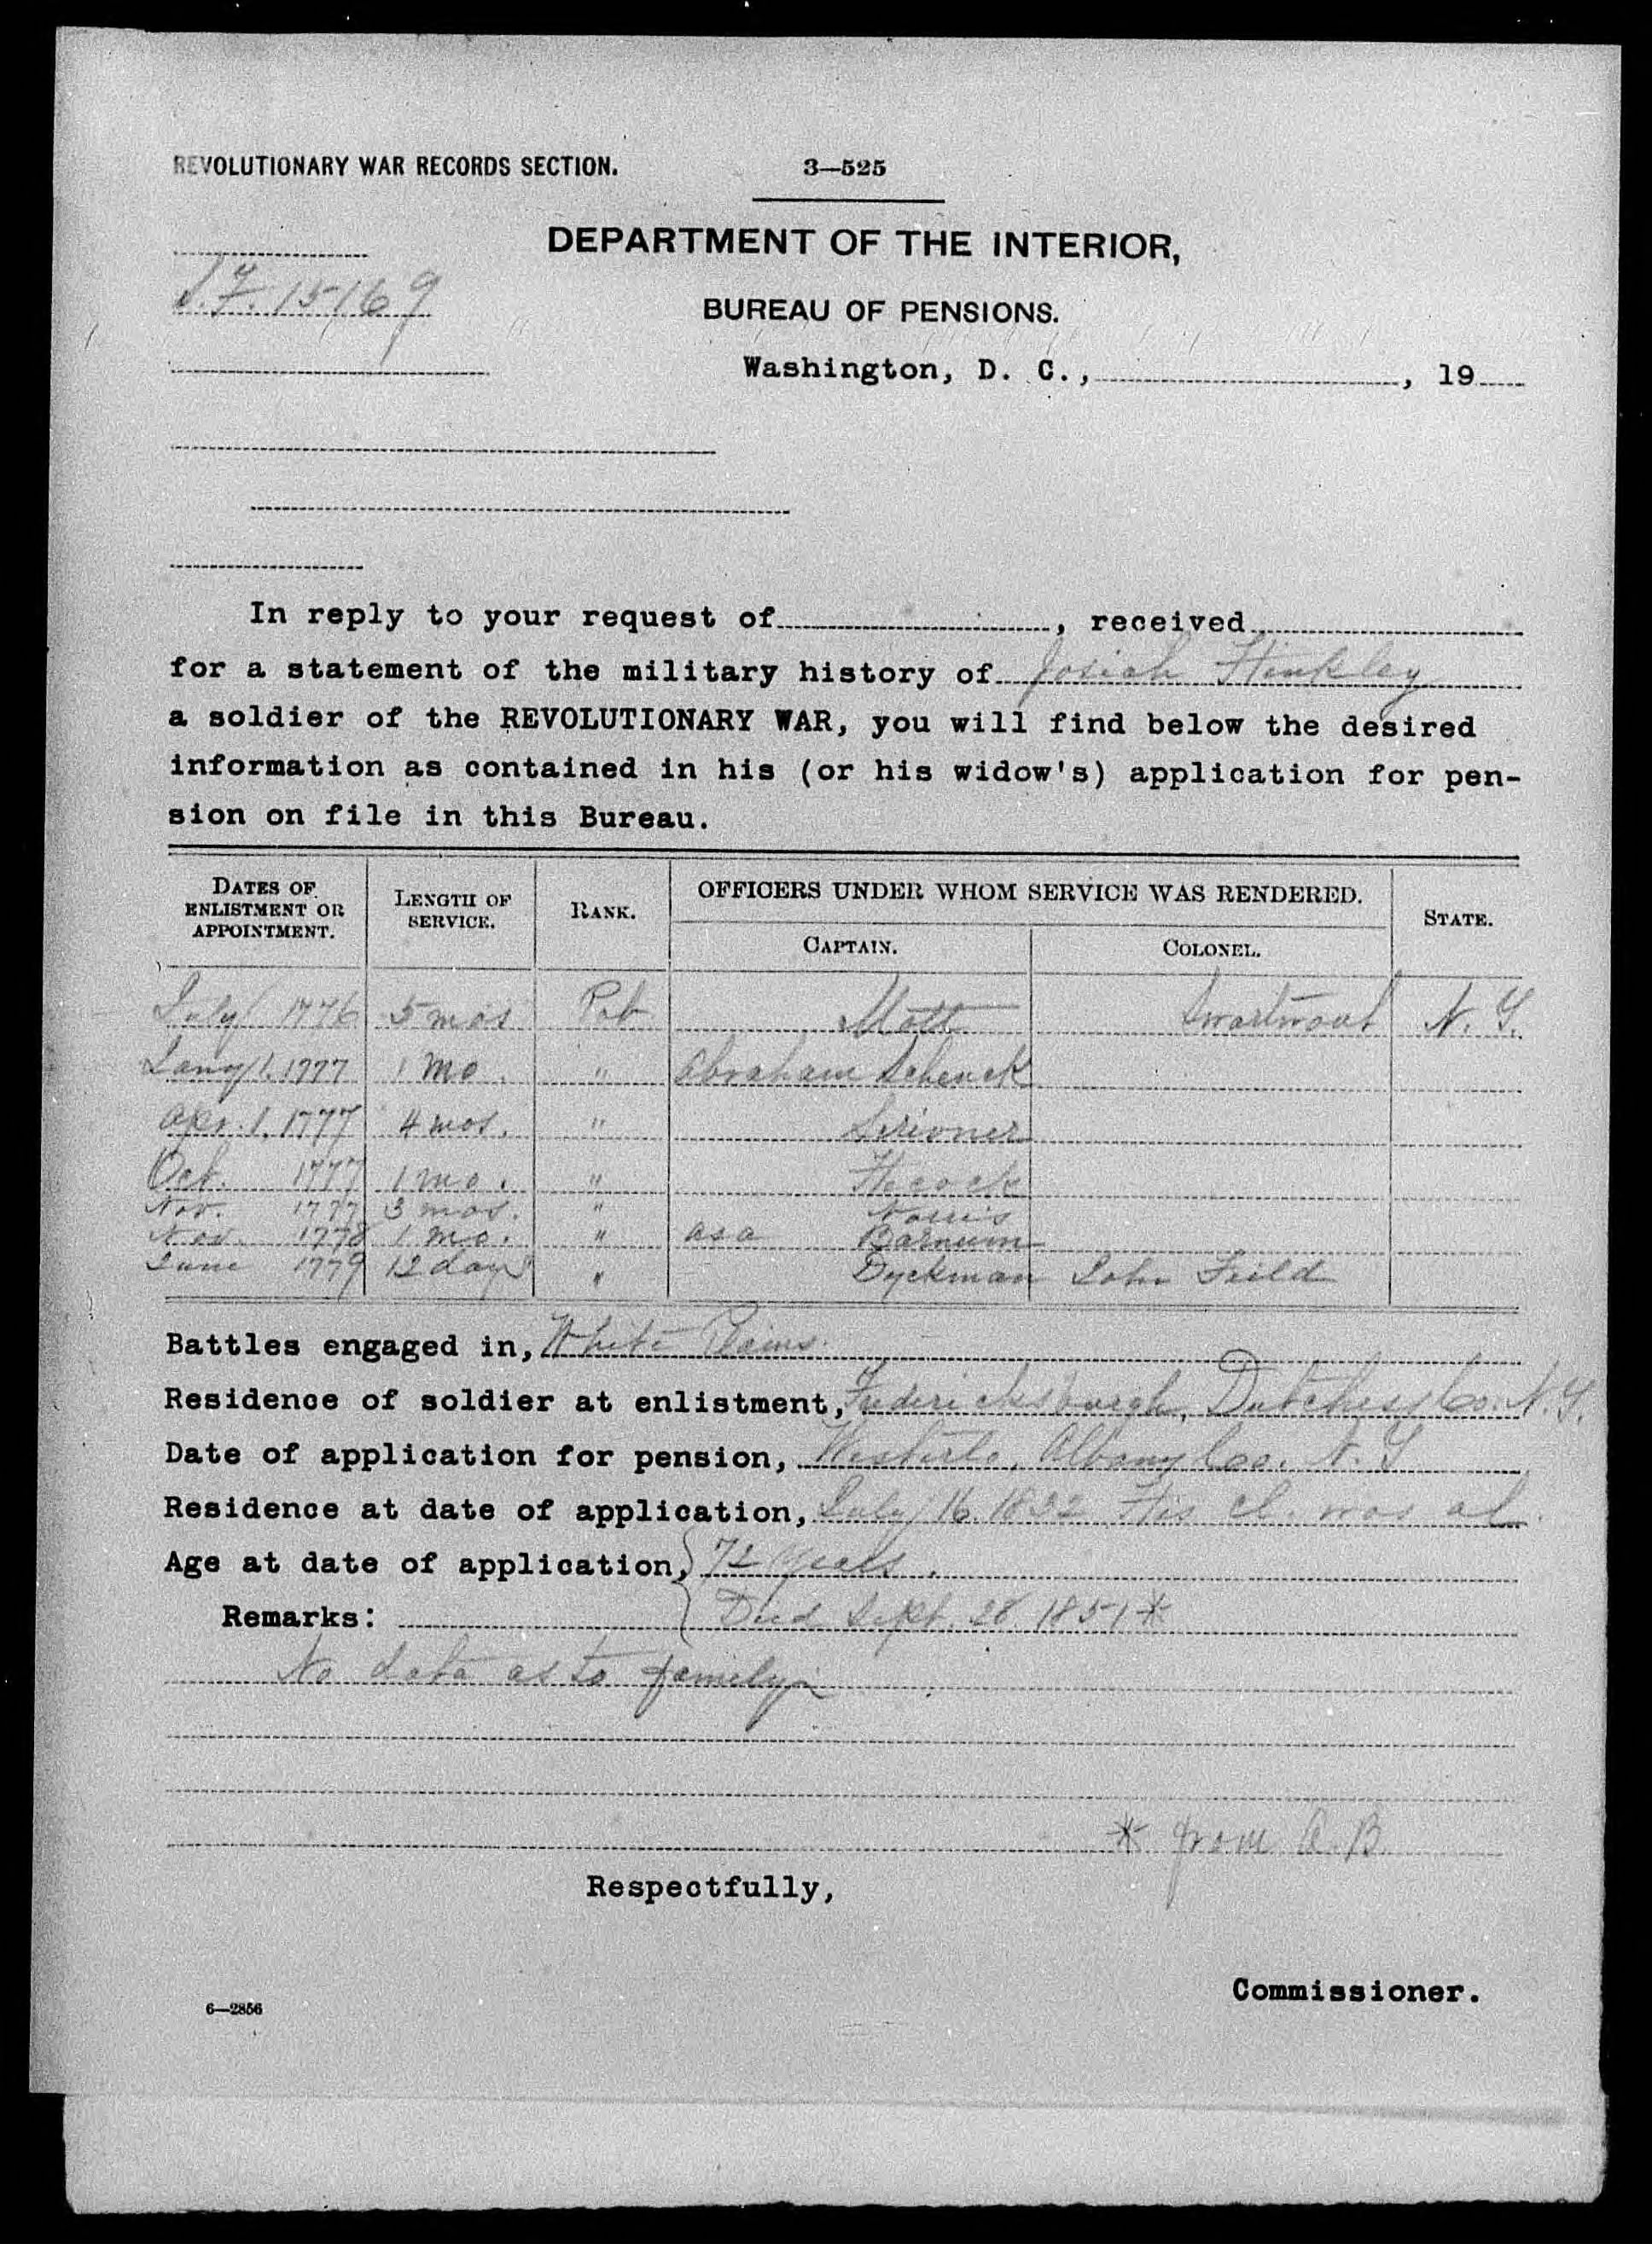 REVOLUTIONARY WAR RECORDS SECTION. 3—525
DEPARTMENT OF THE INTERIOR,
S.F. 15169
BUREAU OF PENSIONS.
Washington, D. C., , 19
In reply to your request of , received
for a statement of the military history of Josiah Hinkley
a soldier of the REVOLUTIONARY WAR, you will find below the desired
information as contained in his (or his widow's) application for pen-
sion on file in this Bureau.
DATES OF ENLISTMENT OR APPOINTMENT. LENGTH OF SERVICE. RANK. OFFICERS UNDER WHOM SERVICE WAS RENDERED. STATE.
CAPTAIN. COLONEL.
July 1776 5 mos Pvt. Mott Swartwout N. Y.
Jany 1. 1777 1 mo. " Abraham Schenck
Apr. 1. 1777 4 mos. " Scrivner
Oct. 1777 1 mo. " Hecock
Nov. 1777 3 mos. " Norris
Nov. 1778 1 mo. " as a Barnum
June 1779 12 days " Dyckman John Feild
Battles engaged in, White Plains.
Residence of soldier at enlistment, Fredericksburgh, Dutchess Co. N. Y.
Date of application for pension, Westerlo, Albany Co. N. Y
Residence at date of application, July 16. 1832 His cl. was al.
Age at date of application, 72 years.
Remarks: Died Sept. 28. 1851 *
No data as to family
* from A. B.
Respectfully,
Commissioner.
6—2856